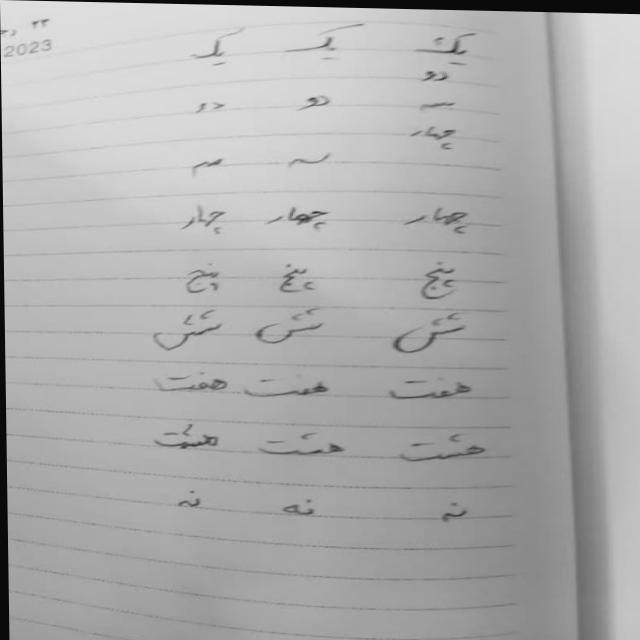 2023
یک یک یک
دو
سه دو دو
چهار
سه سه
چهار چهار چهار
پنج پنج پنج
شش شش شش
هفت هفت هفت
هشت هشت هشت
نه نه نه